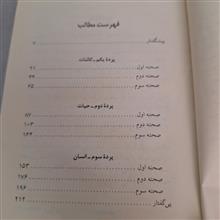 فهرست مطالب
پیشگفتار ۷
پردهٔ یکم ـ کائنات
صحنه اول ۲۱
صحنه دوم ۴۴
صحنه سوم ۶۵
پردهٔ دوم ـ حیات
صحنه اول ۸۷
صحنه دوم ۱۰۳
صحنه سوم ۱۴۴
پردهٔ سوم ـ انسان
صحنه اول ۱۵۳
صحنه دوم ۱۷۶
صحنه سوم ۱۹۶
پی‌گفتار ۲۱۲